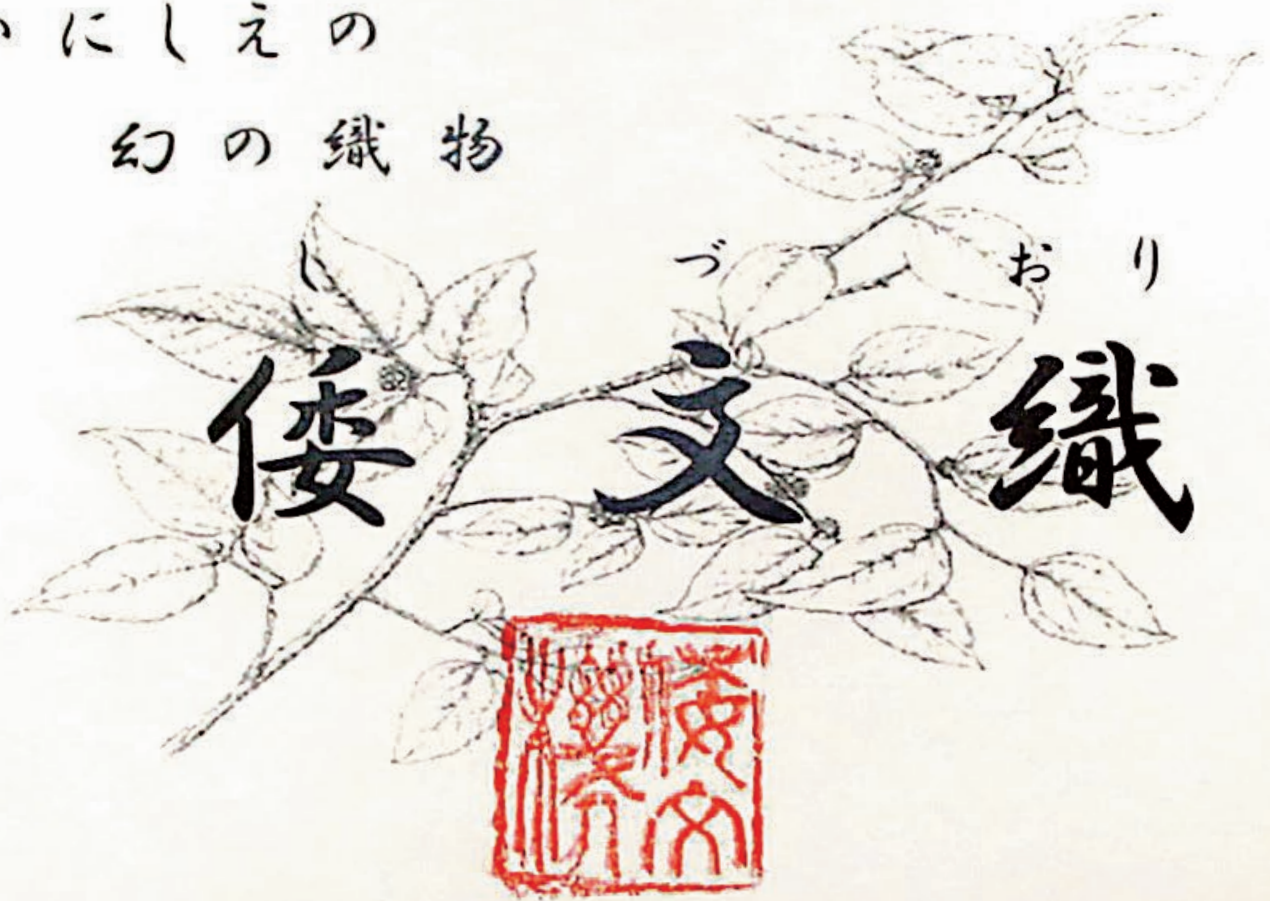 にしえの
幻の織物
しづおり
倭文織
倭文